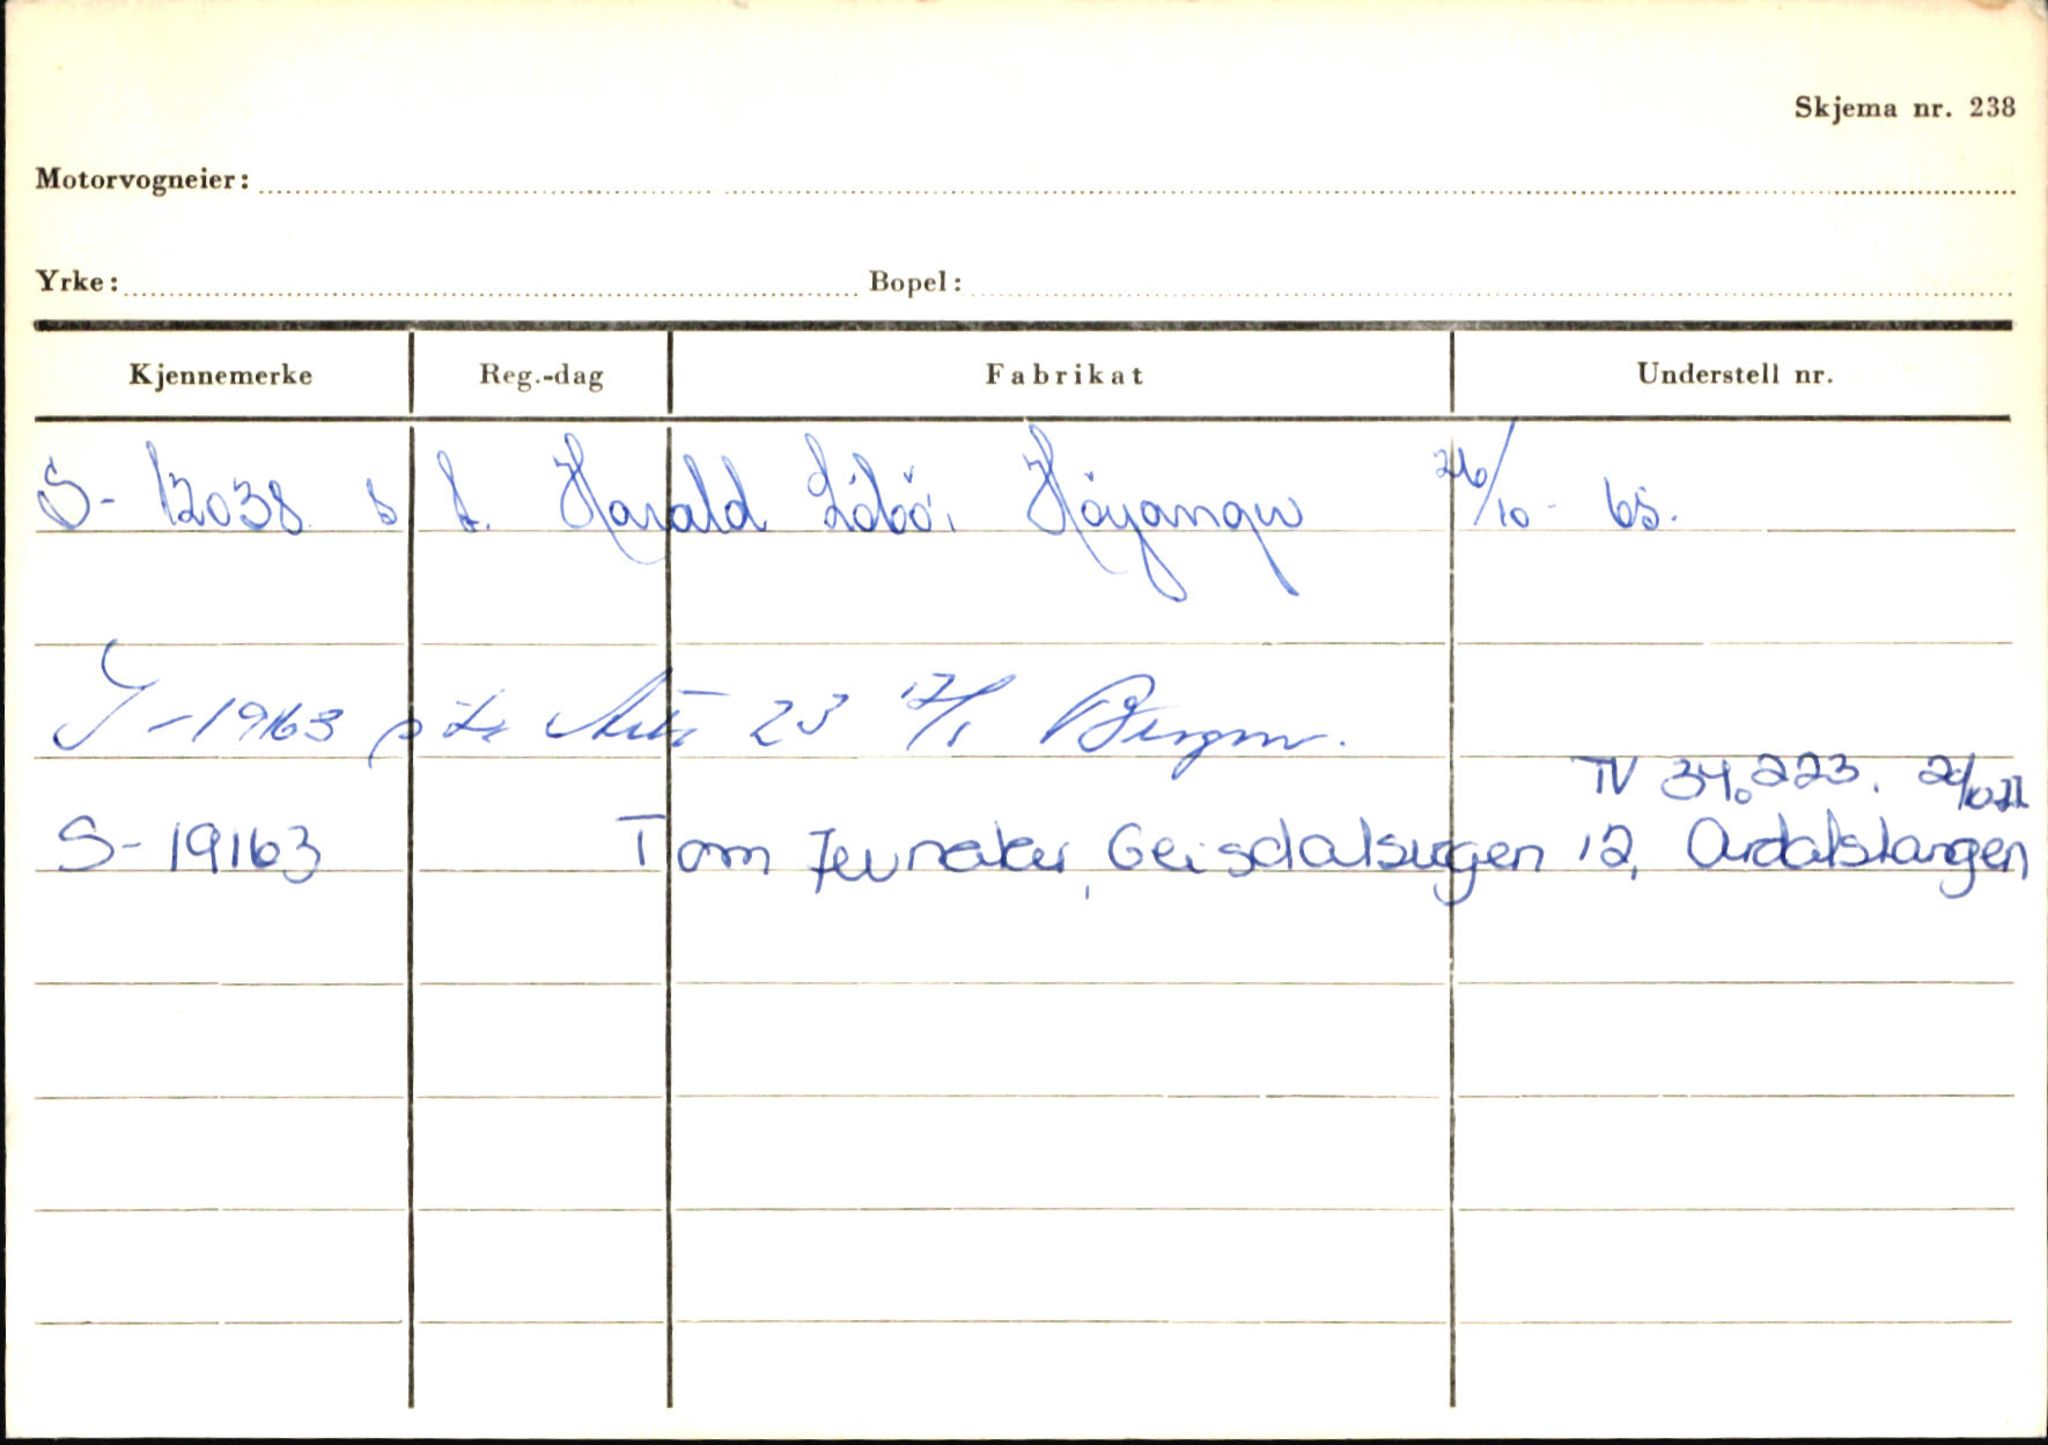 Skjema nr. 238
Motorvogneier:
Yrke: Bopel:
Kjennemerke Reg.-dag Fabrikat Understell nr.
S- 12038 s l. Harald Libö, Höyanger 26/10- 65.
S-19163 23 17/1 Bergen.
TV 34.223.
S-19163 Tom Jevnaker, Geisdalsvegen 12, Ardalstangen